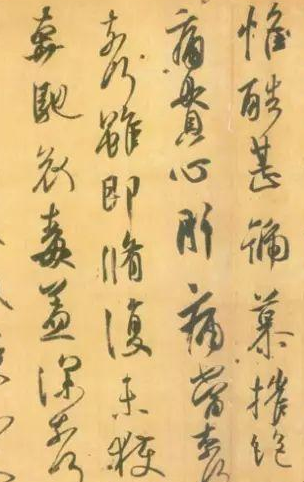 惟酷甚號慕摧絕
痛貫心肝痛當奈何
奈何雖即脩復未獲
奔馳哀毒益深奈何